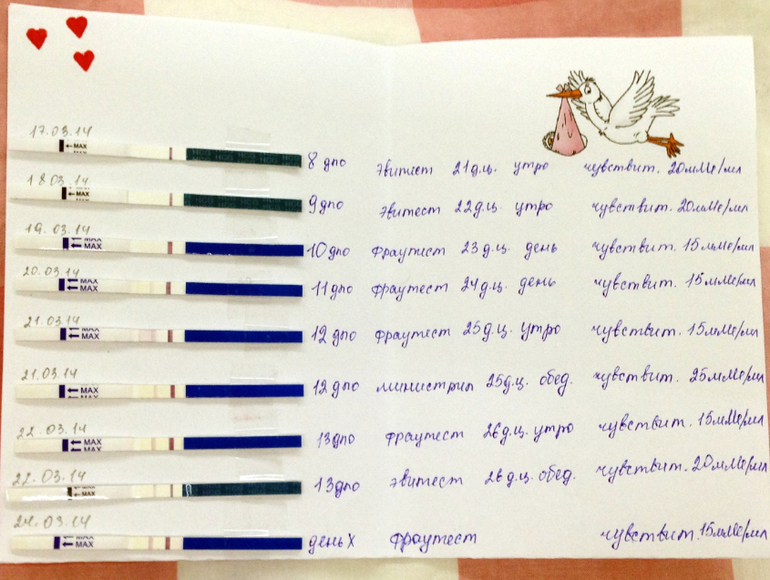 17.03.14
MAX 8 дпо Эвитест 21д.ц. утро чувствит. 20мМе/мл
18.03.14
MAX 9 дпо Эвитест 22д.ц. утро чувствит. 20мМе/мл
19.03.14
MAX MAX 10 дпо Фраутест 23 д.ц. день чувствит. 15мМе/мл
20.03.14
MAX MAX 11 дпо Фраутест 24 д.ц. день чувствит. 15мМе/мл
21.03.14
MAX MAX 12 дпо Фраутест 25д.ц. утро чувствит. 15мМе/мл
21.03.14
MAX 12 дпо министрип 25д.ц. обед. чувствит. 25мМе/мл
22.03.14
MAX MAX 13 дпо Фраутест 26д.ц. утро чувствит. 15мМе/мл
22.03.14
MAX 13 дпо Эвитест 26 д.ц. обед. чувствит. 20мМе/мл
24.03.14
MAX MAX день Х Фраутест чувствит. 15мМе/мл